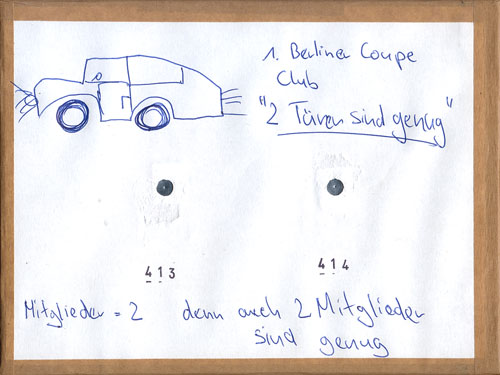 1. Berliner Coupe
Club
"2 Türen sind genug"
413
414
Mitglieder = 2 denn auch 2 Mitglieder
sind genug